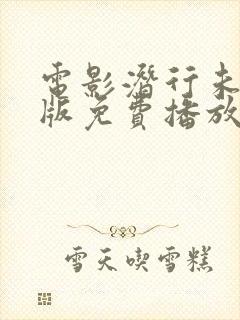 電影潛行未
版免費播放
雪天喫雪糕